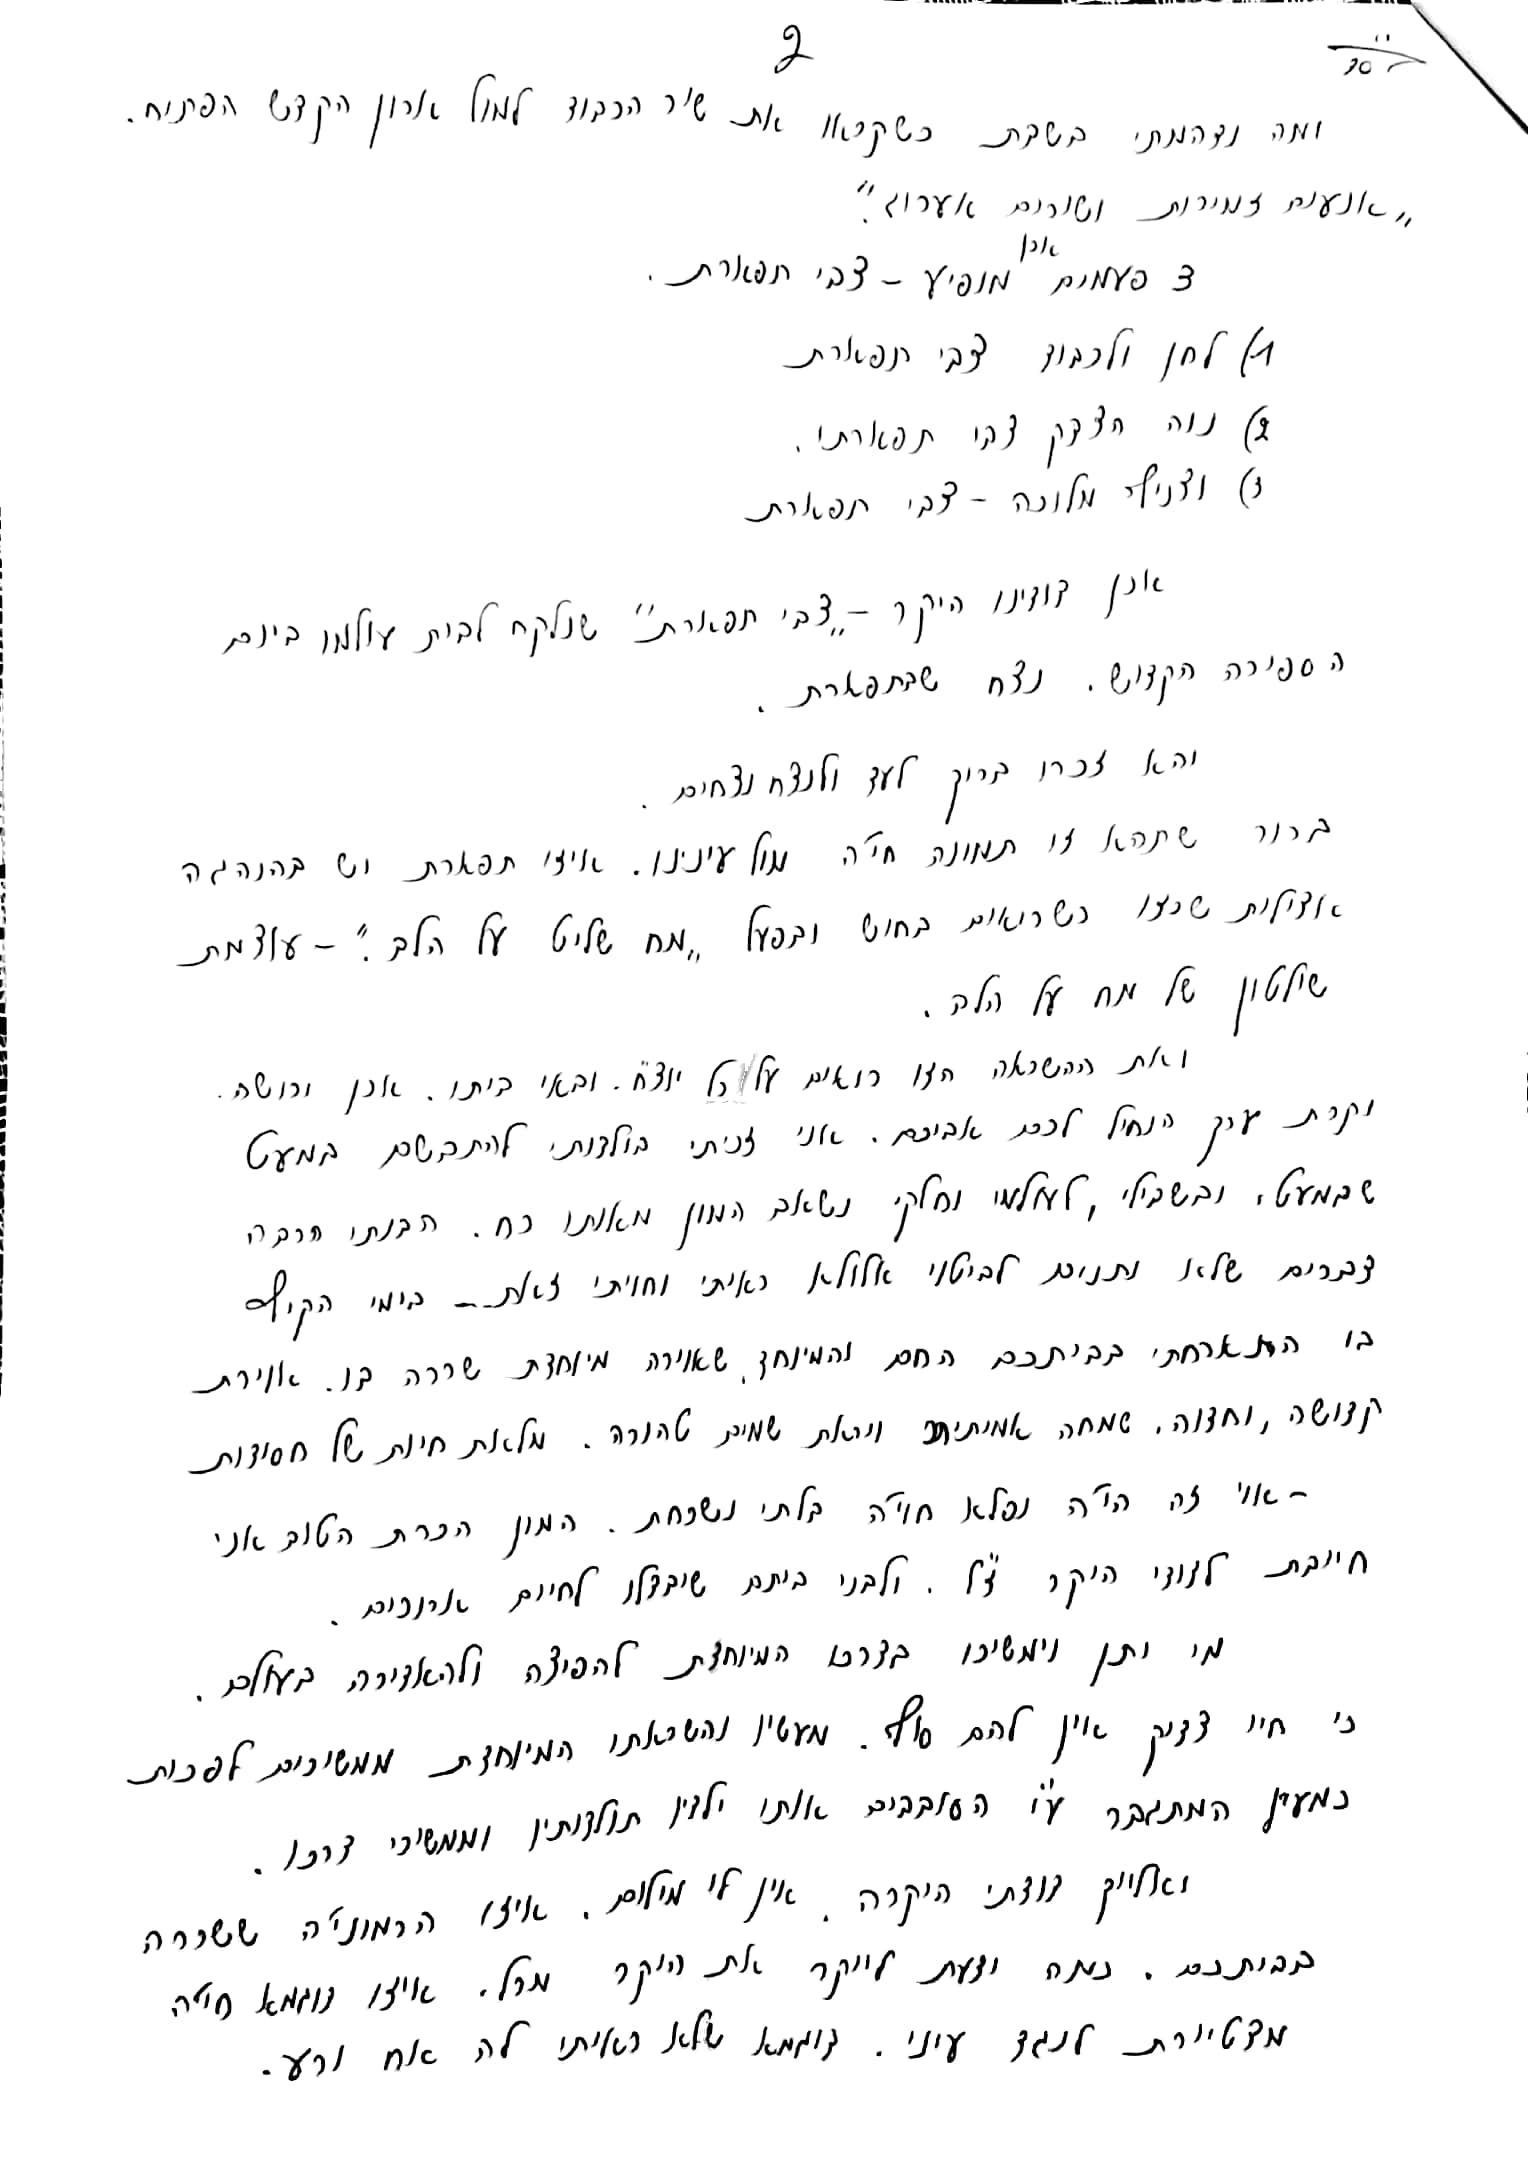 2
ומה נדהמתי בשבת כשקראו את שיר הכבוד למול ארון הקדש הפתוח.
„אנעים זמירות ושירים אערוג."
3 פעמים אכן מופיע – צבי תפארת.
1) לחן ולכבוד צבי תפארת
2) נוה הצדק צבי תפארתו.
3) וצניף מלוכה – צבי תפארת
אכן דודינו היקר – „צבי תפארת" שנלקח לבית עולמו ביום
הספירה הקדוש. נצח שבתפארת.
יהא זכרו ברוך לעד ולנצח נצחים.
ברור שתהא זו תמונה חי'ה מול עינינו. איזו תפארת יש בהנהגה
אצילית שכזו כשרואים בחוש ובפעל „מח שליט על הלב." – עוצמת
שילטון של מח על הלב.
ואת ההשראה הזו רואים על כל יוצ"ח. ובאי ביתו. אכן ירושה
יקרת ערך הנחיל לכם אביכם. אני זכיתי בילדותי להתבשם במעט
שבמעט, ובשבילי, לעלמי וחלקי נשאב המון מאותו כח. הבנתי הרבה
דברים שלא נתנים לביטוי אלולא ראיתי וחויתי זאת – בימי הקיץ
בו התארחתי בביתכם החם והמיוחד, שאוירה מיוחדת שררה בו. אוירת
קדושה, וחדוה, שמחה אמיתית ויראת שמים טהורה. מלאת חיות של חסידות
– אוי זה הי'ה נפלא חוי'ה בלתי נשכחת. המון הכרת הטוב אני
חייבת לדודי היקר ז"ל. ולבני ביתם שיבדלו לחיים ארוכים.
מי יתן וימשיכו בדרכו המיוחדת להפיצה ולהאדירה בעולם.
כי חיי צדיק אין להם סוף. מעשיו והשראתו המיוחדת ממשיכים לפכות
כמעין המתגבר ע"י הסובבים אותו ילדיו תולדותיו וממשיכי דרכו.
ואלייך דודתי היקרה, אין לי מילים. איזו הרמוני'ה ששררה
בביתכם. כמה ידעת לייקר את היקר מכל. איזו דוגמא חי'ה
מצטיירת לנגד עיני. דוגמא שלא ראיתי לה אח ורע.